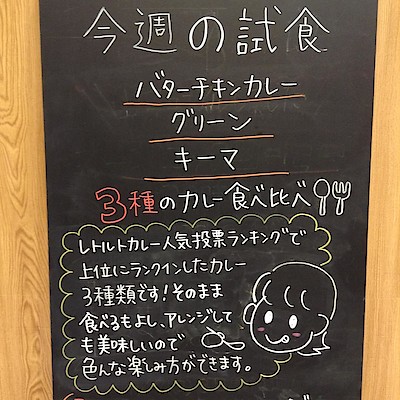 今週の試食
バターチキンカレー
グリーン
キーマ
3種のカレー食べ比べ
レトルトカレー人気投票ランキングで
上位にランクインしたカレー
3種類です!そのまま
食べるもよし、アレンジして
も美味しいので
色んな楽しみ方ができます。